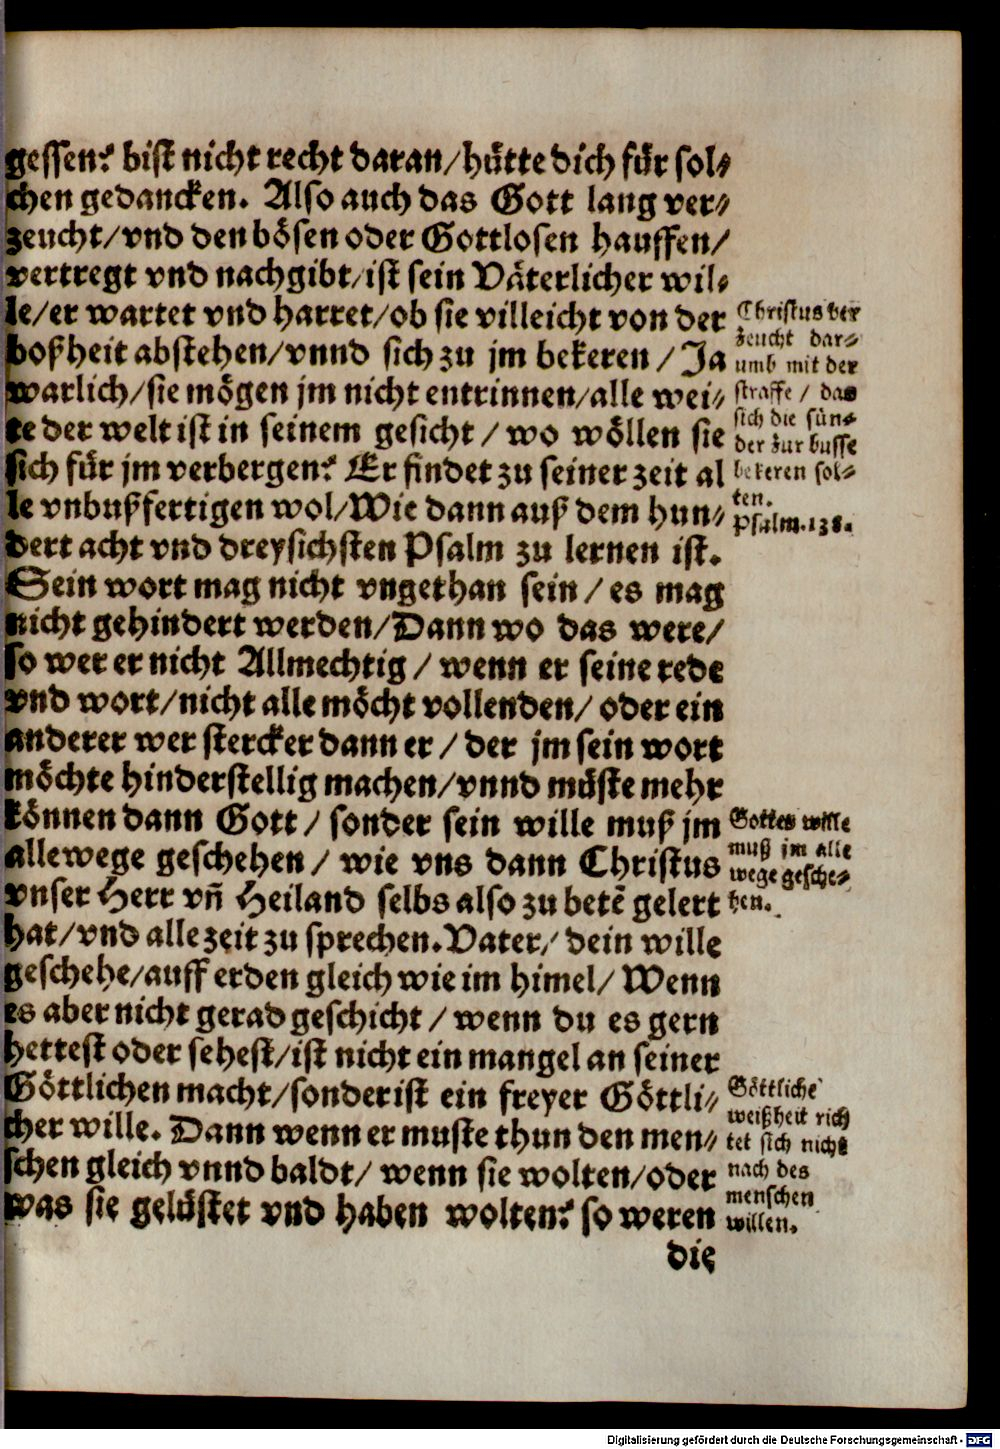 gessen? bist nicht recht daran/hütte dich für sol⸗
chen gedancken. Also auch das Gott lang ver⸗
zeucht/vnd den bösen oder Gottlosen hauffen/
vertregt vnd nachgibt/ist sein Väterlicher wil⸗
le/er wartet vnd harret/ob sie villeicht von der
boßheit abstehen/vnnd sich zu jm bekeren/Ja
warlich/sie mögen jm nicht entrinnen/alle wei⸗
te der welt ist in seinem gesicht/wo wöllen sie
sich für jm verbergen? Er findet zu seiner zeit al
le vnbußfertigen wol/Wie dann auß dem hun⸗
dert acht vnd dreysichsten Psalm zu lernen ist.
Sein wort mag nicht vngethan sein/es mag
nicht gehindert werden/Dann wo das were/
so wer er nicht Allmechtig/wenn er seine rede
vnd wort/nicht alle möcht vollenden/oder ein
anderer wer stercker dann er/der jm sein wort
möchte hinderstellig machen/vnnd müste mehr
können dann Gott/sonder sein wille muß jm
allewege geschehen/wie vns dann Christus
vnser Herr vñ Heiland selbs also zu betẽ gelert
hat/vnd alle zeit zu sprechen. Vater/dein wille
geschehe/auff erden gleich wie im himel/Wenn
es aber nicht gerad geschicht/wenn du es gern
hettest oder sehest/ist nicht ein mangel an seiner
Göttlichen macht/sonder ist ein freyer Göttli⸗
cher wille. Dann wenn er muste thun den men⸗
schen gleich vnnd baldt/wenn sie wolten/oder
was sie gelüstet vnd haben wolten? so weren
die
Christus ver
zeucht dar⸗
umb mit der
straffe/das
sich die sün⸗
der zur busse
bekeren sol⸗
ten.
Psalm.138.
Gottes wille
muß jm alle
wege gesche⸗
hen.
Göttliche
weißheit rich
tet sich nicht
nach des
menschen
willen.
Digitalisierung gefördert durch die Deutsche Forschungsgemeinschaft - DFG